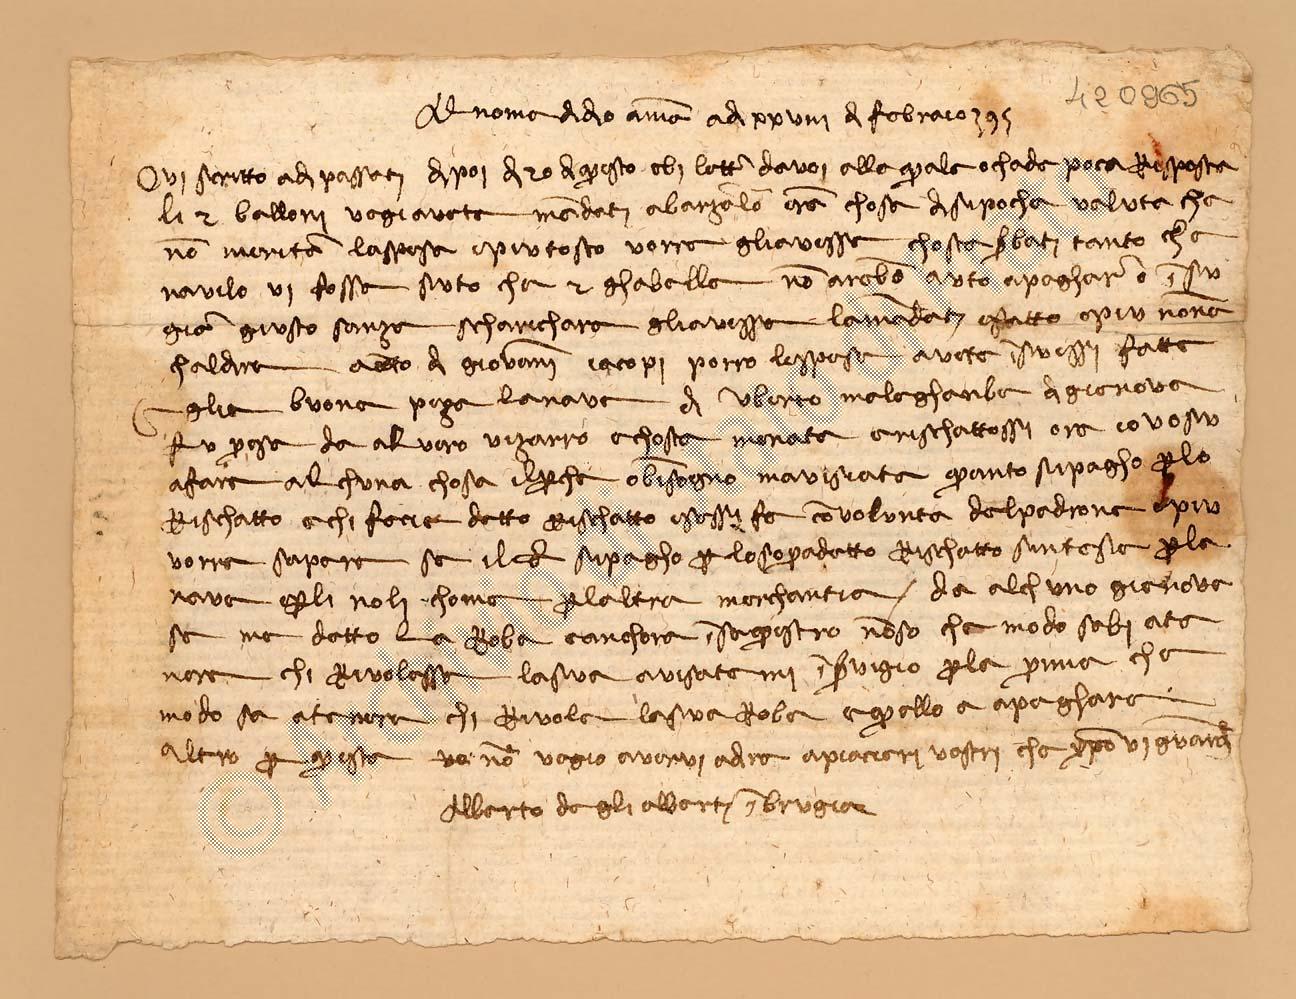 420965
Al nome di dio amē adì xxviii di febraio 395
Qui scritto a dì passati dipoi dì 20 di questo ebi lettā da voi alla quale ochade poca Risposta
li 2 balloni vegiavete mādati a barzalō erā chosa di sipocha valuta che
nō meritā laspesa e piutosto vorre gliavesse chosta tanto che
navilo vi fosse suto che 2 ghabelle nō arebō auto apaghare ō ī su
giā giusto sanza scharichare gliavesse lamādati e fatto e piu none
chaldre aōto di giovāni iacopi porro lesspese avete ī suessi fatte
glie buona peza lanave di Uberto maleghanbe di gienova
fu presa da alvero vizarro e chosta menata e rischattossi ora io vosu
afare alchuna chosa il perche o bisogno mavisiate quanto si pagho per lo
Rischatto e chi fecie detto Rischatto e sessi fe cōvolunta del padrone e piu
vorre sapere se il si pagho per lo sopradetto Rischatto sintesie per la
nave e per li noli chome per laltra merchantia / da alchuno gienove
se me detto La Roba eanchora ī sequestro nōso che modo sabi ate
nere chi Rivolesse lasua avisatemi ī per la prima che
modo sa atenere chi Rivole lasua Roba e quello a apaghare
altro per questa vo nō vegio avervi adire apiacieri vostri che xpō vi ghuardi
Alberto degli alberti ī brugia
© Archivio di Stato di Prato